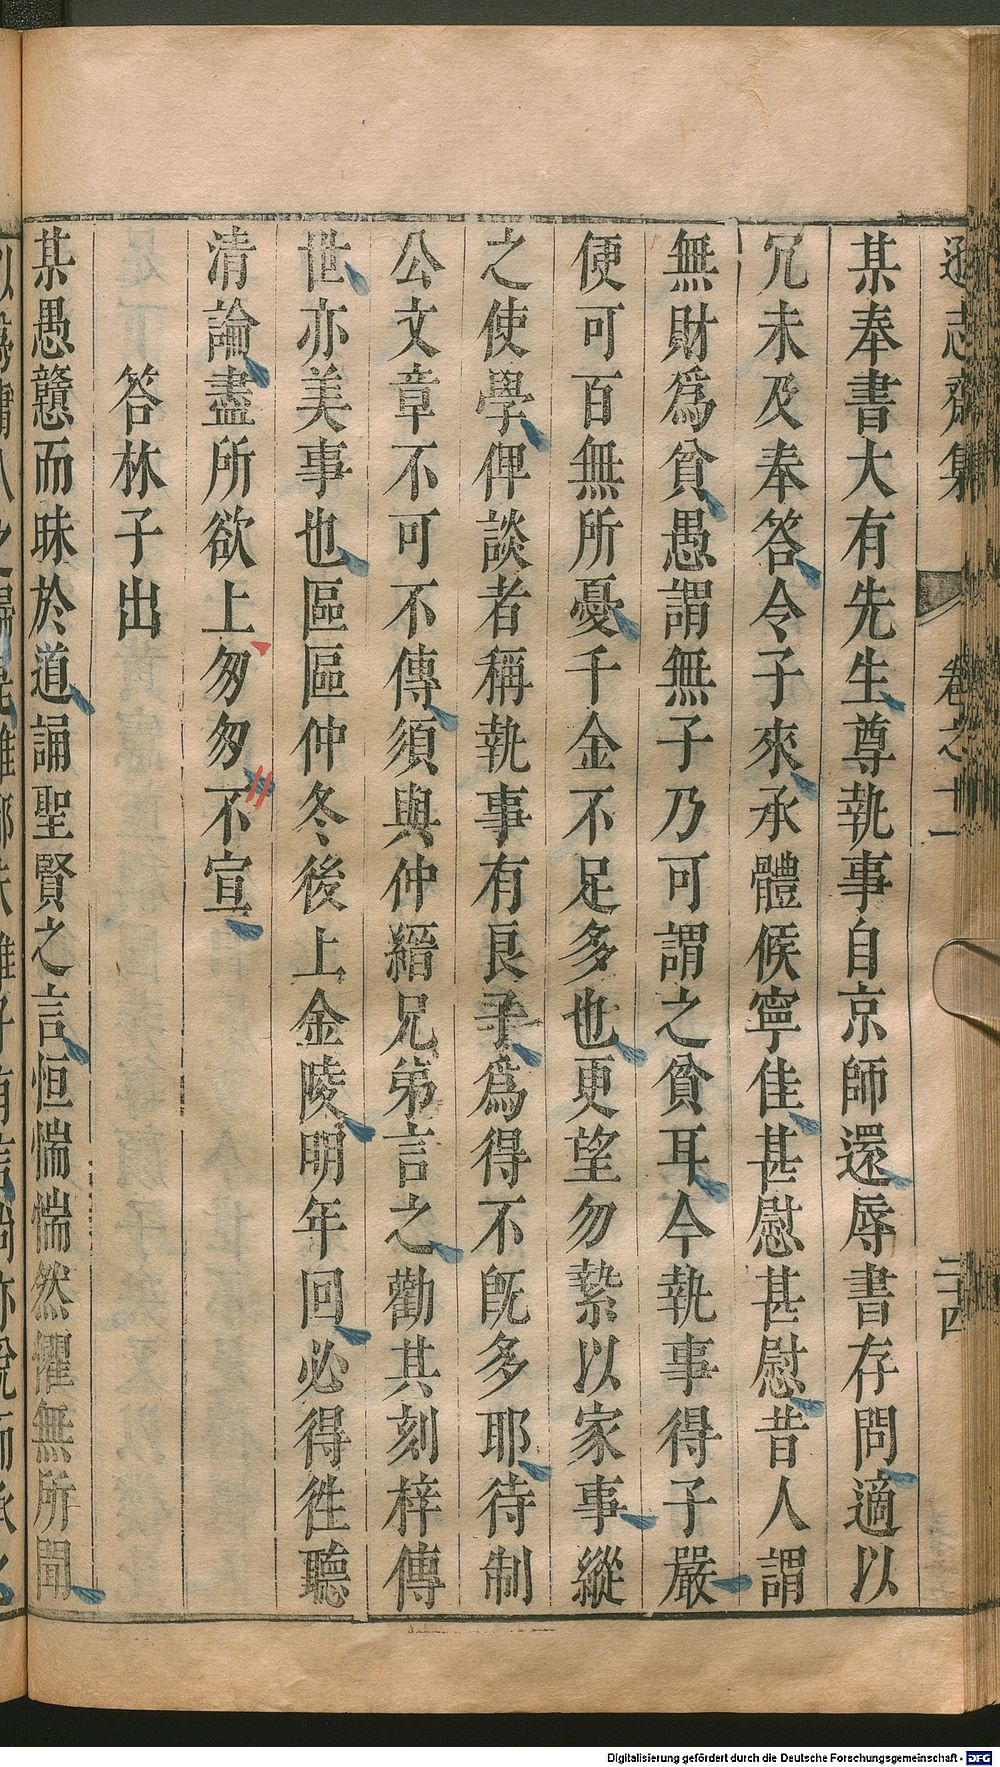 遜志齋集 卷之十一 二十四
某奉書大有先生尊執事自京師還辱書存問適以
冗未及奉答令子來承體候寧佳甚慰甚慰昔人謂
無財爲貧愚謂無子乃可謂之貧耳今執事得子嚴
便可百無所憂千金不足多也更望勿縶以家事縱
之使學俾談者稱執事有良子爲得不旣多耶待制
公文章不可不傳須與仲縉兄弟言之勸其刻梓傳
世亦美事也區區仲冬後上金陵明年回必得徃聽
清論盡所欲上匆匆不宣
答林子出
某愚戇而昧於道誦聖賢之言恒惴惴然懼無所聞
Digitalisierung gefördert durch die Deutsche Forschungsgemeinschaft - DFG